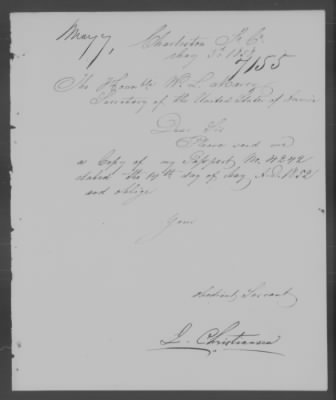 May 7,
Charleston So. Ca.
May 3d 1853
7155
The Honble Wm. L. Marcy
Secretary of the United States of America
Dear Sir
Please send me
a Copy of my Passport No. 4242
dated the 14th day of May A.D. 1852
and oblige
Your
obedient Servant
L. Christiansen